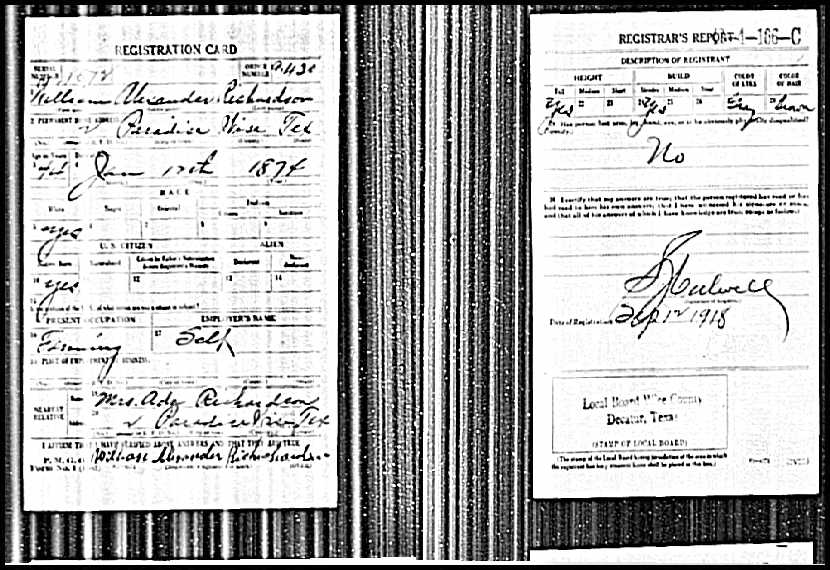 REGISTRATION CARD
SERIAL NUMBER
ORDER NUMBER
William Alexander Richardson
2 PERMANENT HOME ADDRESS:
Paradise Wise Tex
Jan 1874
RACE
White Negro Oriental Indian
Yes
U. S. CITIZEN ALIEN
Native Born Naturalized Citizen by Father's Naturalization Before Registrant's Majority Declarant Non-declarant
10 yes 12 13 14
PRESENT OCCUPATION EMPLOYER'S NAME
16 Farming 17 Self
PLACE OF EMPLOYMENT OR BUSINESS:
NEAREST RELATIVE Name Mrs. Ada Richardson
Address Paradise Wise Tex
I AFFIRM THAT I HAVE VERIFIED ABOVE ANSWERS AND THAT THEY ARE TRUE
P. M. G. O.
William Alexander Richardson
REGISTRAR'S REPORT
-166-C
DESCRIPTION OF REGISTRANT
HEIGHT BUILD COLOR OF EYES COLOR OF HAIR
Tall Medium Short Slender Medium Stout
Yes 22 23 24 Yes 25 26 Grey Brown
29 Has person lost arm, leg, hand, eye, or is he obviously physically disqualified?
No
30 I certify that my answers are true; that the person registered has read or has had read to him his own answers; that I have witnessed his signature or mark, and that all of his answers of which I have knowledge are true, except as follows:
Date of Registration Sep 12 1918
Local Board Wise County
Decatur, Texas
(STAMP OF LOCAL BOARD)
(The stamp of the Local Board having jurisdiction of the area in which the registrant has his permanent home shall be placed in this box.)